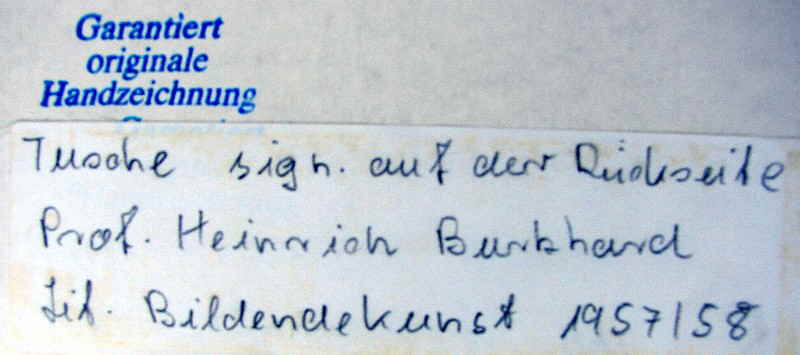 Garantiert
originale
Handzeichnung
Tusche sign. auf der Rückseite
Prof. Heinrich Burkhard
Lit. Bildendekunst 1957/58